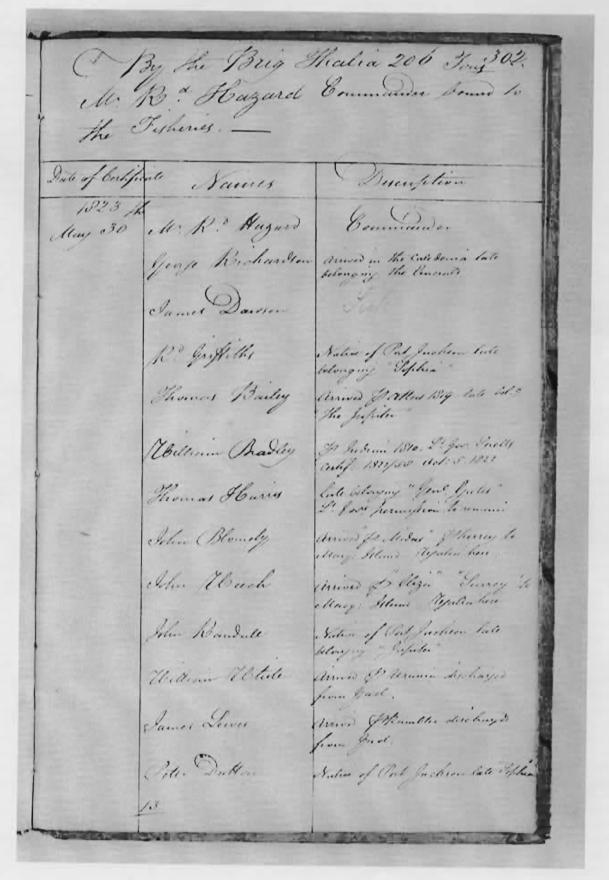 302.
By the Brig Thalia 206 Tons
Mr. Rd. Hazard Commander bound to
the Fisheries. —
Date of Certificate Names Description
1823 the
May 30 Mr. Rd. Hazard Commander
George Richardson Arrived in the Caledonia late
belonging the
James Dawson
Rd. Griffiths Native of Port Jackson late
belonging "Sophia"
Thomas Bailey Arrived 1819 late
"the Jupiter"
William Bradley Pr. 1810. Lt. Gov.
Certif. Oct. 5. 1822
Thomas Harris late belonging "Genl. Gates"
Lt. Govrs. permission to remain
John Arrived Pr. "Midas" Pr. Surrey to
Macq. Island
John Arrived Pr. "Eliza" "Surrey" to
Macq. Island
John Randall Native of Port Jackson late
belongg. "Jupiter"
William Arrived Pr. discharged
from Gaol.
James Arrived Pr. discharged
from Gaol.
Peter Dutton Native of Port Jackson late "Sophia"
13